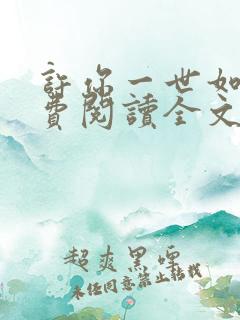 許你一世如
費閱讀全文
超爽黑嘌
未任同意禁止転載